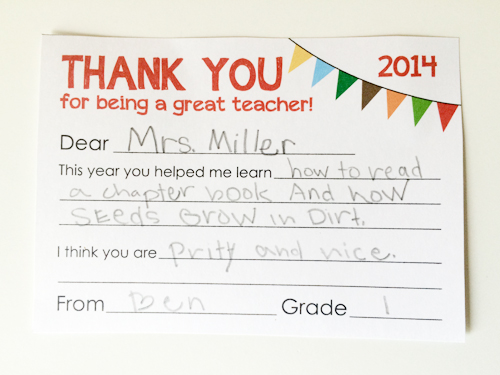 THANK YOU 2014
for being a great teacher!
Dear Mrs. Miller
This year you helped me learn how to read
a chapter book And how
SEEdS GROW in DIRt.
I think you are prity and nice.
From Ben Grade 1